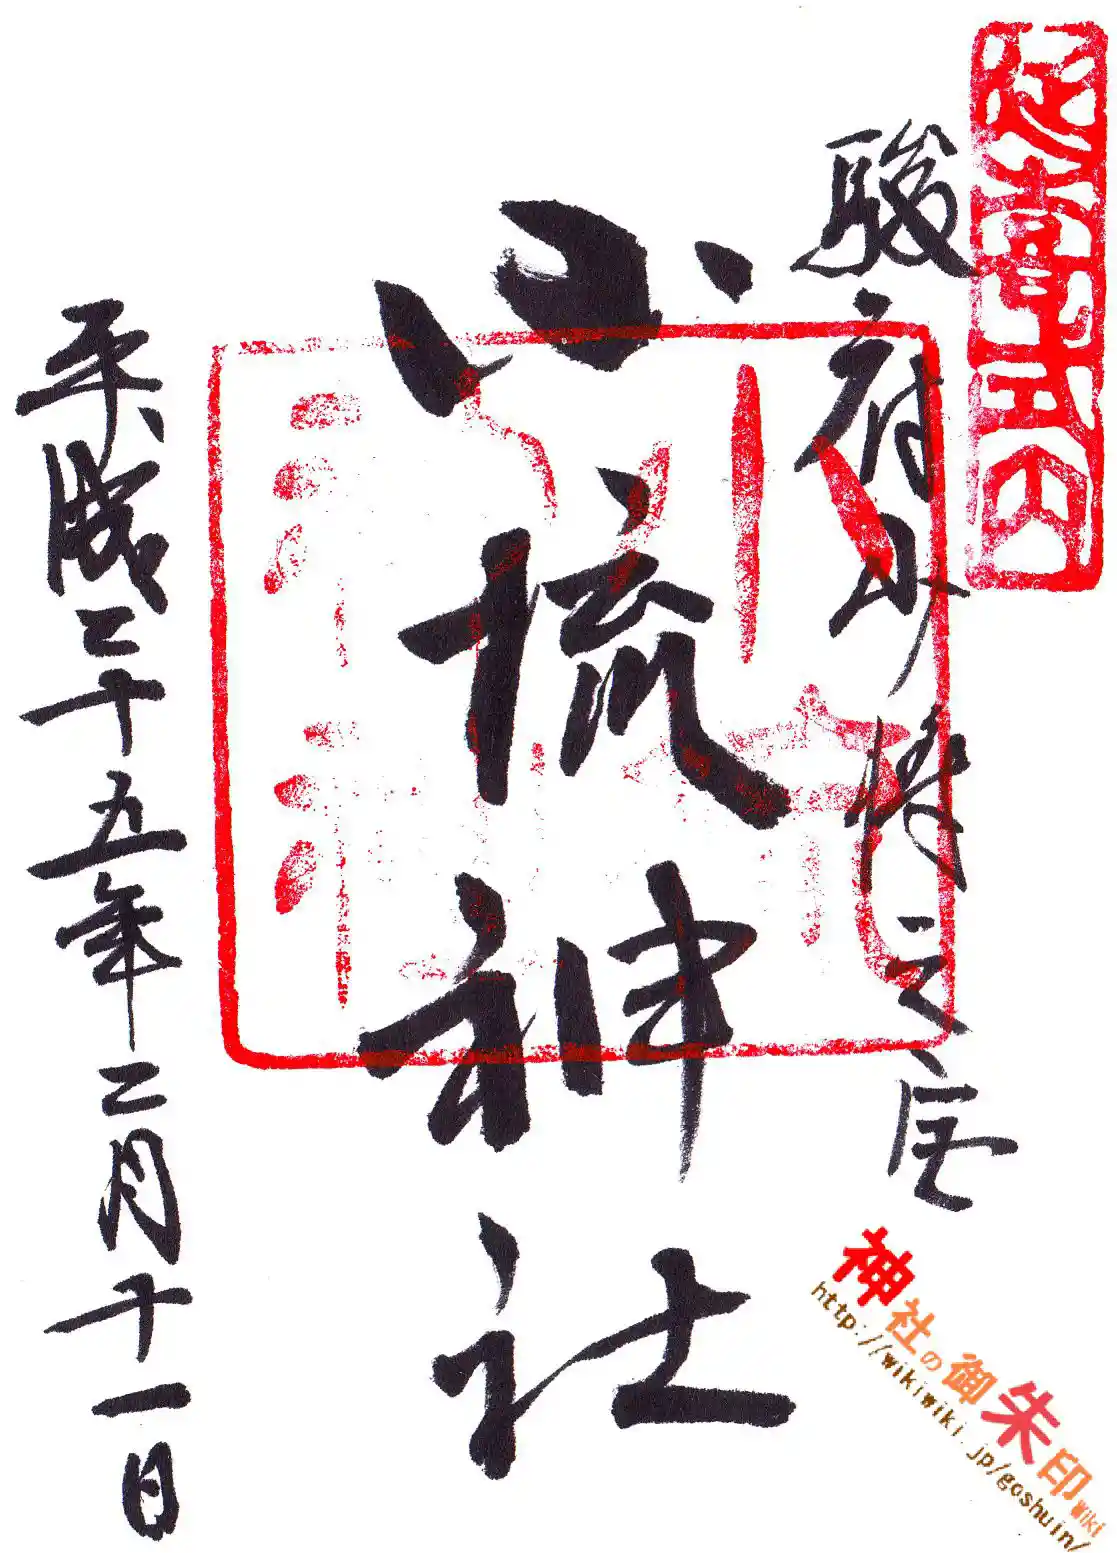 延喜式内
駿府町椿之宮
小梳神社
平成二十五年二月十一日
神社の御朱印Wiki
http://wikiwiki.jp/goshuin/